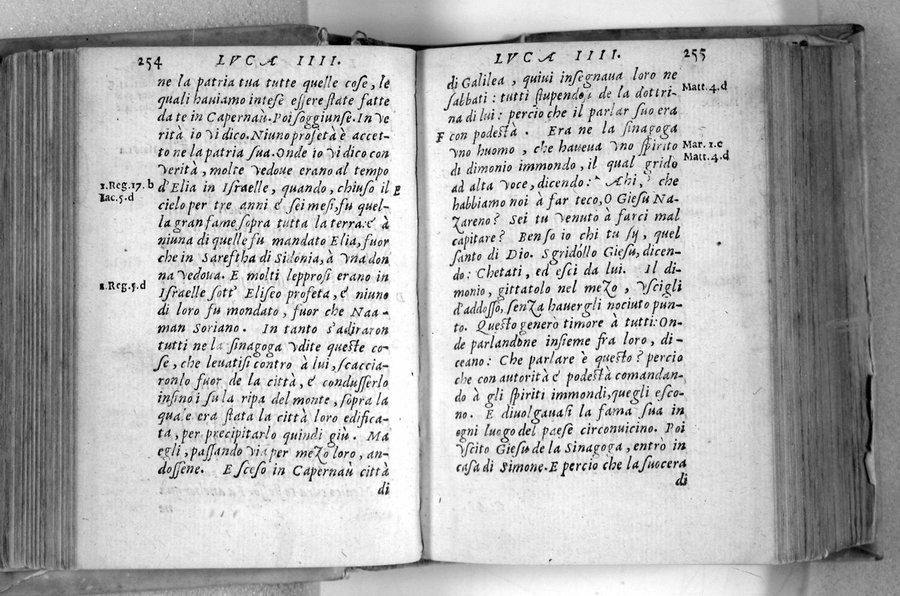 254 LVCA IIII.
ne la patria tua tutte quelle cose, le
quali haviamo intese essere state fatte
da te in Capernaũ. Poi soggiunse. In ve
rità io vi dico. Niuno profeta è accet-
to ne la patria sua. Onde io vi dico con
verità, molte vedove erano al tempo
1.Reg.17.b d'Elia in Israelle, quando, chiuso il E
Iac.5.d cielo per tre anni e sei mesi, fu quel-
la gran fame sopra tutta la terra: e à
niuna di quelle fu mandato Elia, fuor
che in Sareftha di Sidonia, à vna don
na vedova. E molti lepprosi erano in
2.Reg.5.d Israelle sott' Eliseo profeta, e niuno
di loro fu mondato, fuor che Naa-
man Soriano. In tanto s'adiraron
tutti ne la sinagoga vdite queste co-
se, che levatisi contro à lui, scaccia-
ronlo fuor de la città, e condusserlo
insino i su la ripa del monte, sopra la
quale era stata la città loro edifica-
ta, per precipitarlo quindi giù. Ma
egli, passando via per mezo loro, an-
dossene. E sceso in Capernaũ città
di
LVCA IIII. 255
di Galilea, quivi insegnava loro ne
sabbati: tutti stupendosi de la dottri- Matt.4.d
na di lui: percio che il parlar suo era
F con podestà. Era ne la sinagoga
vno huomo, che haveua vno spirito Mar.1.c
di dimonio immondo, il qual grido Matt.4.d
ad alta voce, dicendo: Ahi, che
habbiamo noi à far teco, O Giesu Na-
zareno? Sei tu venuto à farci mal
capitare? Ben so io chi tu sy, quel
santo di Dio. Sgridollo Giesu, dicen-
do: Chetati, ed esci da lui. Il di-
monio, gittatolo nel mezo, vscigli
d'addosso, senza havergli nociuto pun-
to. Questo generò timore à tutti: On-
de parlandone insieme fra loro, di-
ceano: Che parlare è questo? percio
che con autorità e podestà comandan-
do à gli spiriti immondi, quegli esco-
no. E divolgavasi la fama sua in
ogni luogo del paese circonvicino. Poi
vscito Giesu de la Sinagoga, entrò in
casa di Simone. E percio che la suocera
di